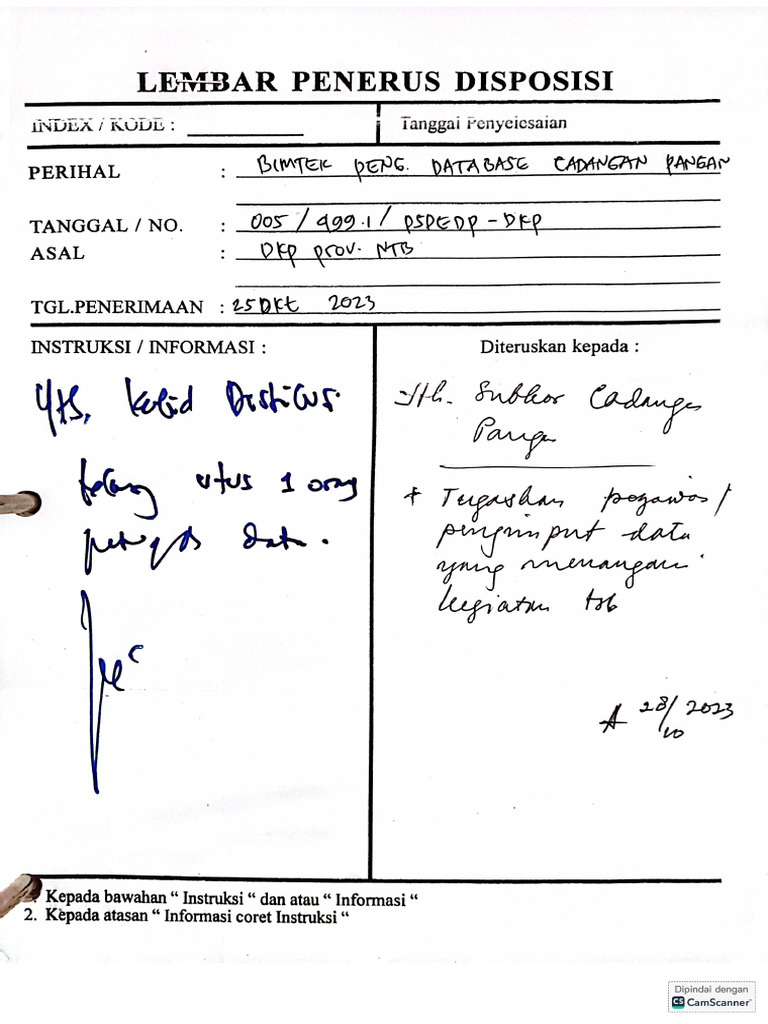 LEMBAR PENERUS DISPOSISI
INDEX / KODE : Tanggal Penyelesaian
PERIHAL : BIMTEK PENG. DATABASE CADANGAN PANGAN
TANGGAL / NO. : 005 / 499.1 / PSPEDP - DKP
ASAL : DKP prov. NTB
TGL.PENERIMAAN : 25 Okt 2023
INSTRUKSI / INFORMASI :
Yth. Kabid Distribusi
tolong utus 1 orang
petugas data.
Diteruskan kepada :
Yth. Subkor Cadangan
Pangan
+ Tugaskan pegawai /
penginput data
yang menangani
kegiatan tsb
28/10 2023
1. Kepada bawahan “ Instruksi “ dan atau “ Informasi “
2. Kepada atasan “ Informasi coret Instruksi “
Dipindai dengan
CS CamScanner